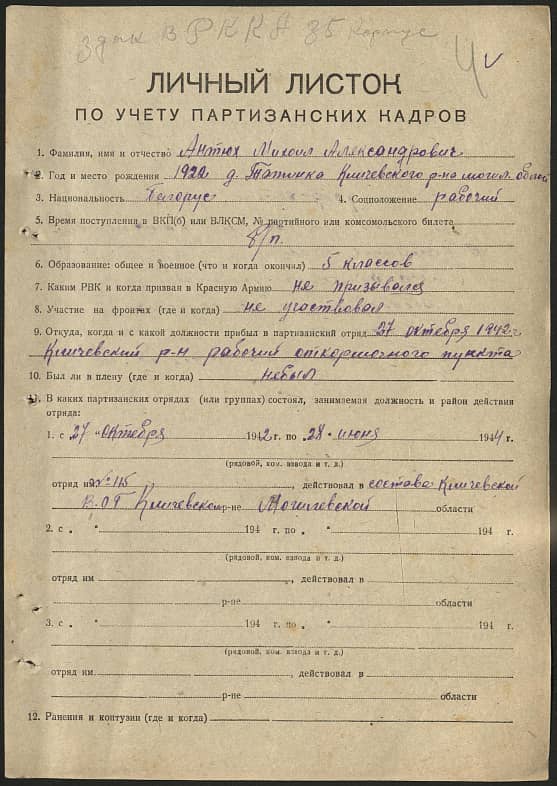 в РККА 35 корпус
ЛИЧНЫЙ ЛИСТОК
ПО УЧЕТУ ПАРТИЗАНСКИХ КАДРОВ
1. Фамилия, имя и отчество Антюх Михаил Александрович
2. Год и место рождения 1922 д. Кличевского р-на могил. облас
3. Национальность Белорус 4. Соцположение рабочий
5. Время поступления в ВКП(б) или ВЛКСМ, № партийного или комсомольского билета
б/п.
6. Образование: общее и военное (что и когда окончил) 5 классов
7. Каким РВК и когда призван в Красную Армию не призывался
8. Участие на фронтах (где и когда) не участвовал
9. Откуда, когда и с какой должности прибыл в партизанский отряд 27 октября 1942 г
Кличевский р-н рабочий откормочного пункта
10. Был ли в плену (где и когда) небыл
11. В каких партизанских отрядах (или группах) состоял, занимаемая должность и район действия
отряда:
1. с 27 " октября 1942 г. по " 28 " июня 1944 г.
(рядовой, ком. взвода и т. д.)
отряд им № 115, действовал в состава Кличевской
В.О.Г Кличевском р-не Могилевской области
2. с " " 194 г. по " " 194 г.
(рядовой, ком. взвода и т. д.)
отряд им , действовал в
р-не области
3. с " " 194 г. по " " 194 г.
(рядовой, ком. взвода и т. д.)
отряд им. , действовал в
р-не области
12. Ранения и контузии (где и когда)